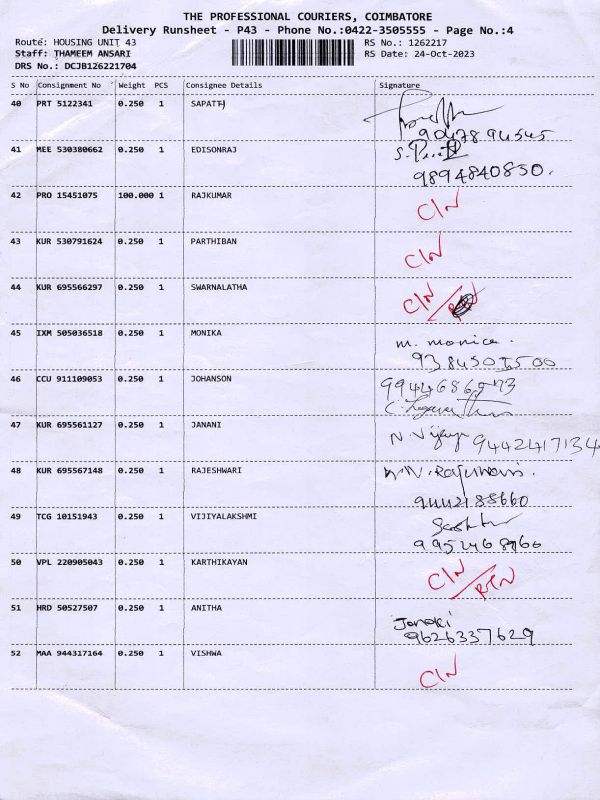 THE PROFESSIONAL COURIERS, COIMBATORE
Delivery Runsheet - P43 - Phone No.:0422-3505555 - Page No.:4
Route: HOUSING UNIT 43 RS No.: 1262217
Staff: THAMEEM ANSARI RS Date: 24-Oct-2023
DRS No.: DCJB126221704
S No Consignment No Weight PCS Consignee Details Signature
40 PRT 5122341 0.250 1 SAPATTJ
9047894545
41 MEE 530380662 0.250 1 EDISONRAJ
9894840850.
42 PRO 15451075 100.000 1 RAJKUMAR C/N
43 KUR 530791624 0.250 1 PARTHIBAN C/N
44 KUR 695566297 0.250 1 SWARNALATHA C/N
45 IXM 505036518 0.250 1 MONIKA m. monica.
46 CCU 911109053 0.250 1 JOHANSON
47 KUR 695561127 0.250 1 JANANI N. Vijaya 9442417134
48 KUR 695567148 0.250 1 RAJESHWARI
9442188660
49 TCG 10151943 0.250 1 VIJIYALAKSHMI
50 VPL 220905043 0.250 1 KARTHIKAYAN C/N/RTN
51 HRD 50527507 0.250 1 ANITHA Janaki
9626337629
52 MAA 944317164 0.250 1 VISHWA C/N